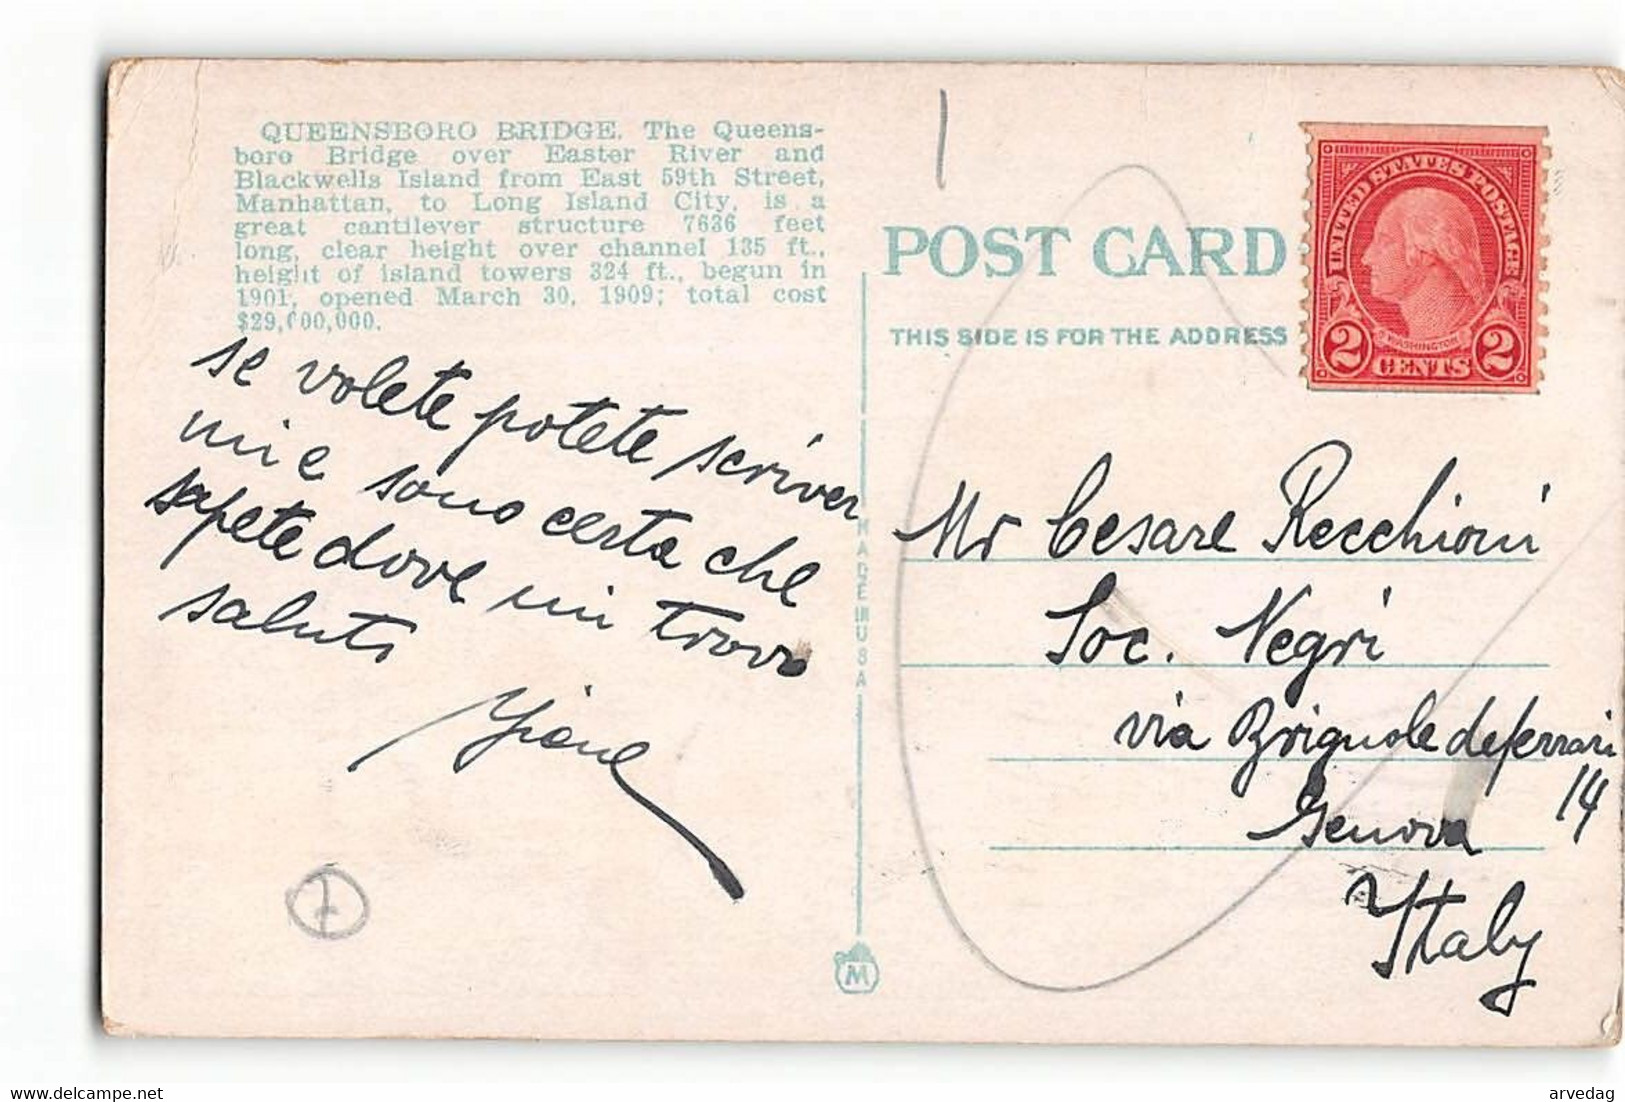 QUEENSBORO BRIDGE. The Queens-
boro Bridge over Easter River and
Blackwells Island from East 59th Street,
Manhattan, to Long Island City, is a
great cantilever structure 7636 feet
long, clear height over channel 135 ft.,
height of island towers 324 ft., begun in
1901, opened March 30, 1909; total cost
$29,000,000.
se volete potete scriver
mi e sono certa che
sapete dove mi trovo
saluti
POST CARD
THIS SIDE IS FOR THE ADDRESS
UNITED STATES POSTAGE
WASHINGTON
2 CENTS 2
MADE IN USA
M
Mr Cesare Recchioni
Soc. Negri
via Brignole deferrari
14
Genova
Italy
See my delcampe.net items
arvedag